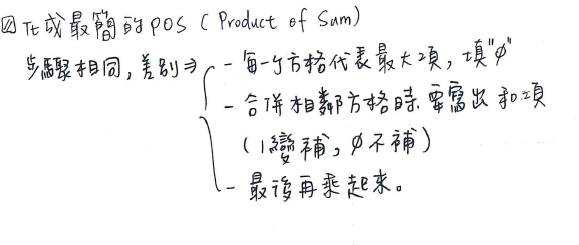 化成最簡的POS (Product of Sum)
步驟相同,差別⇒ - 每一個方格代表最大項,填"φ"
- 合併相鄰方格時要寫出和項
(1變補,φ不補)
- 最後再乘起來。